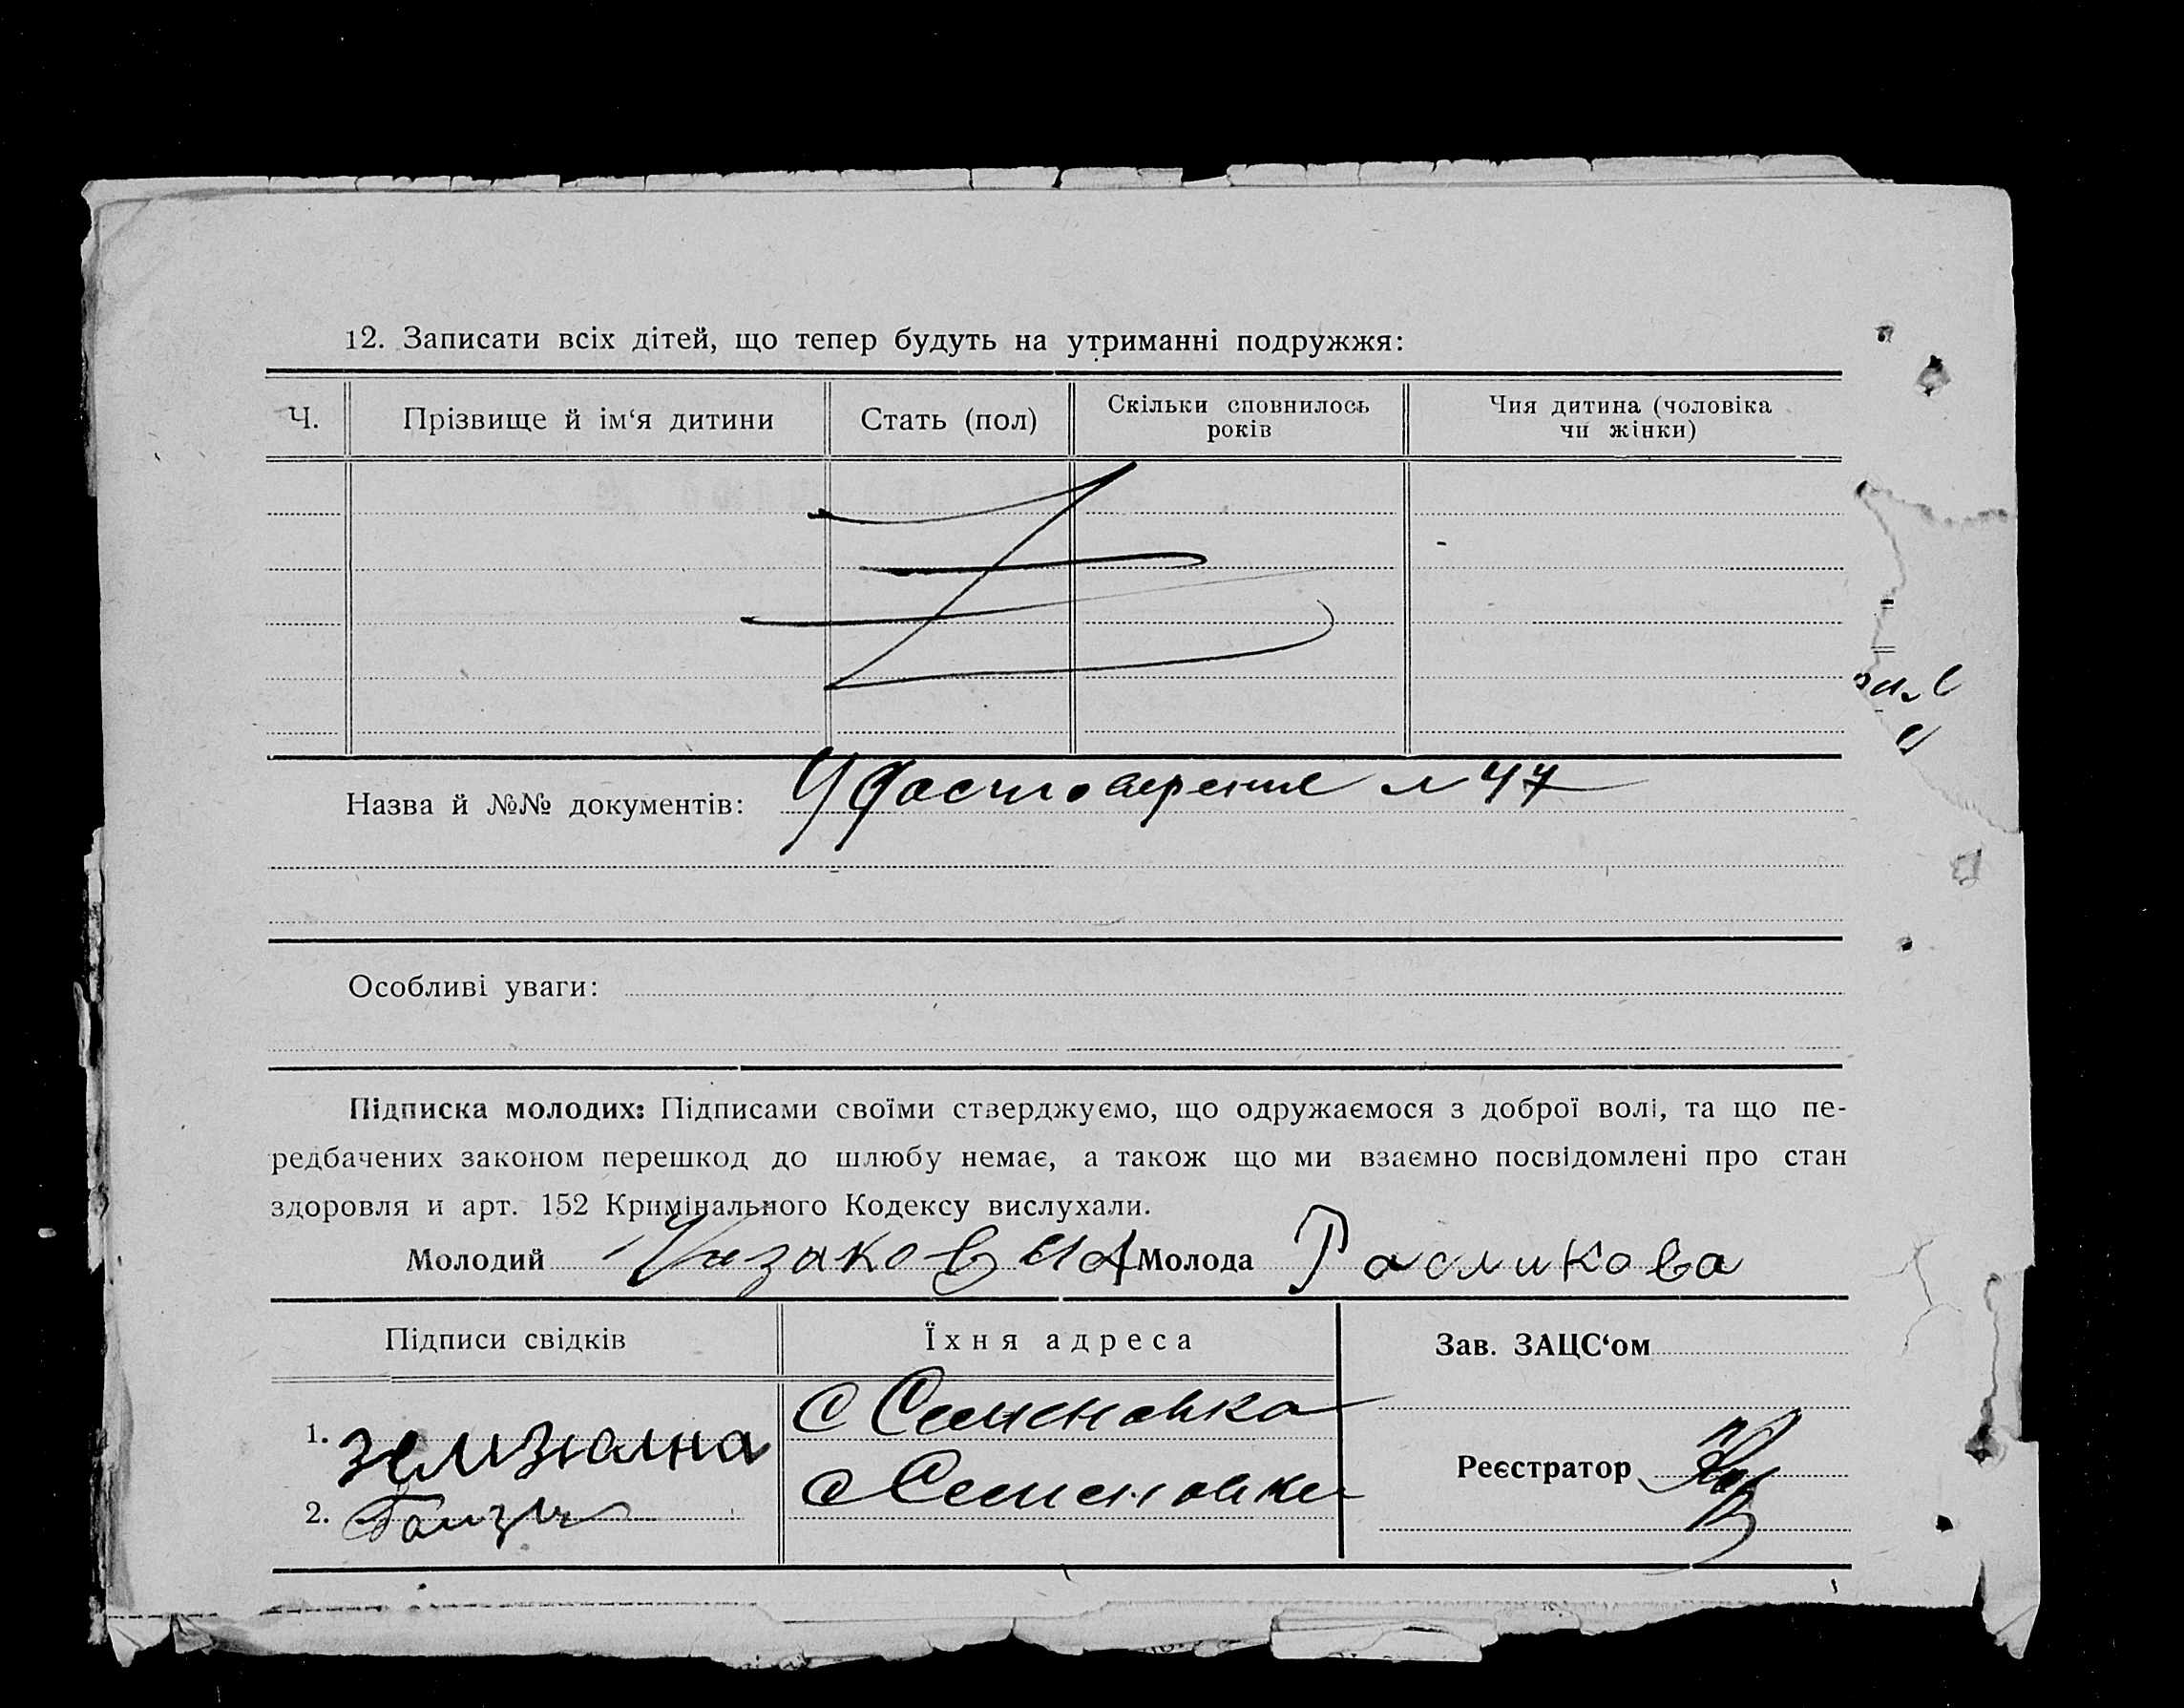 12. Записати всіх дітей, що тепер будуть на утриманні подружжя:
Ч. Прізвище й ім‘я дитини Стать (пол) Скільки сповнилось років Чия дитина (чоловіка чи жінки)
Назва й №№ документів: Удостоверение № 47
Особливі уваги:
Підписка молодих: Підписами своїми стверджуємо, що одружаємося з доброї волі, та що пе-
редбачених законом перешкод до шлюбу немає, а також що ми взаємно посвідомлені про стан
здоровля и арт. 152 Кримінального Кодексу вислухали.
Молодий Казаков Молода Расликова
Підписи свідків Їхня адреса Зав. ЗАЦС‘ом
1. с Семеновка
Реєстратор
2. с Семеновка